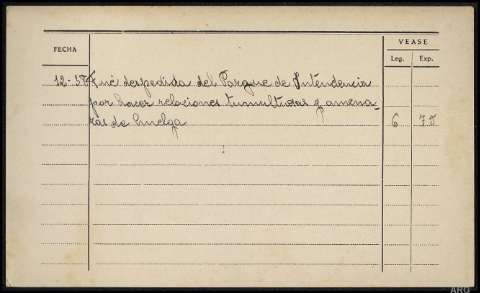 VEASE
FECHA
Leg. Exp.
12-37 Fué despedida del Parque de Intendencia
por hacer relaciones tumultuosas y amena-
zas de huelga
6
ARG